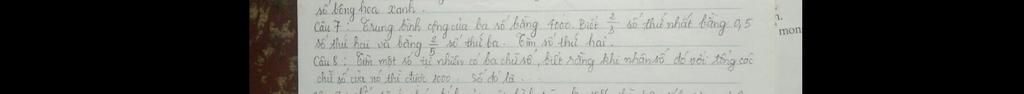 số bông hoa xanh.
Câu 7: Trung bình cộng của ba số bằng 4000. Biết 2/3 số thứ nhất bằng 0,5
số thứ hai và bằng 2/5 số thứ ba. Tìm số thứ hai.
Câu 8: Tìm một số tự nhiên có ba chữ số, biết rằng khi nhân số đó với tổng các
chữ số của nó thì được 1000. Số đó là ...
mon